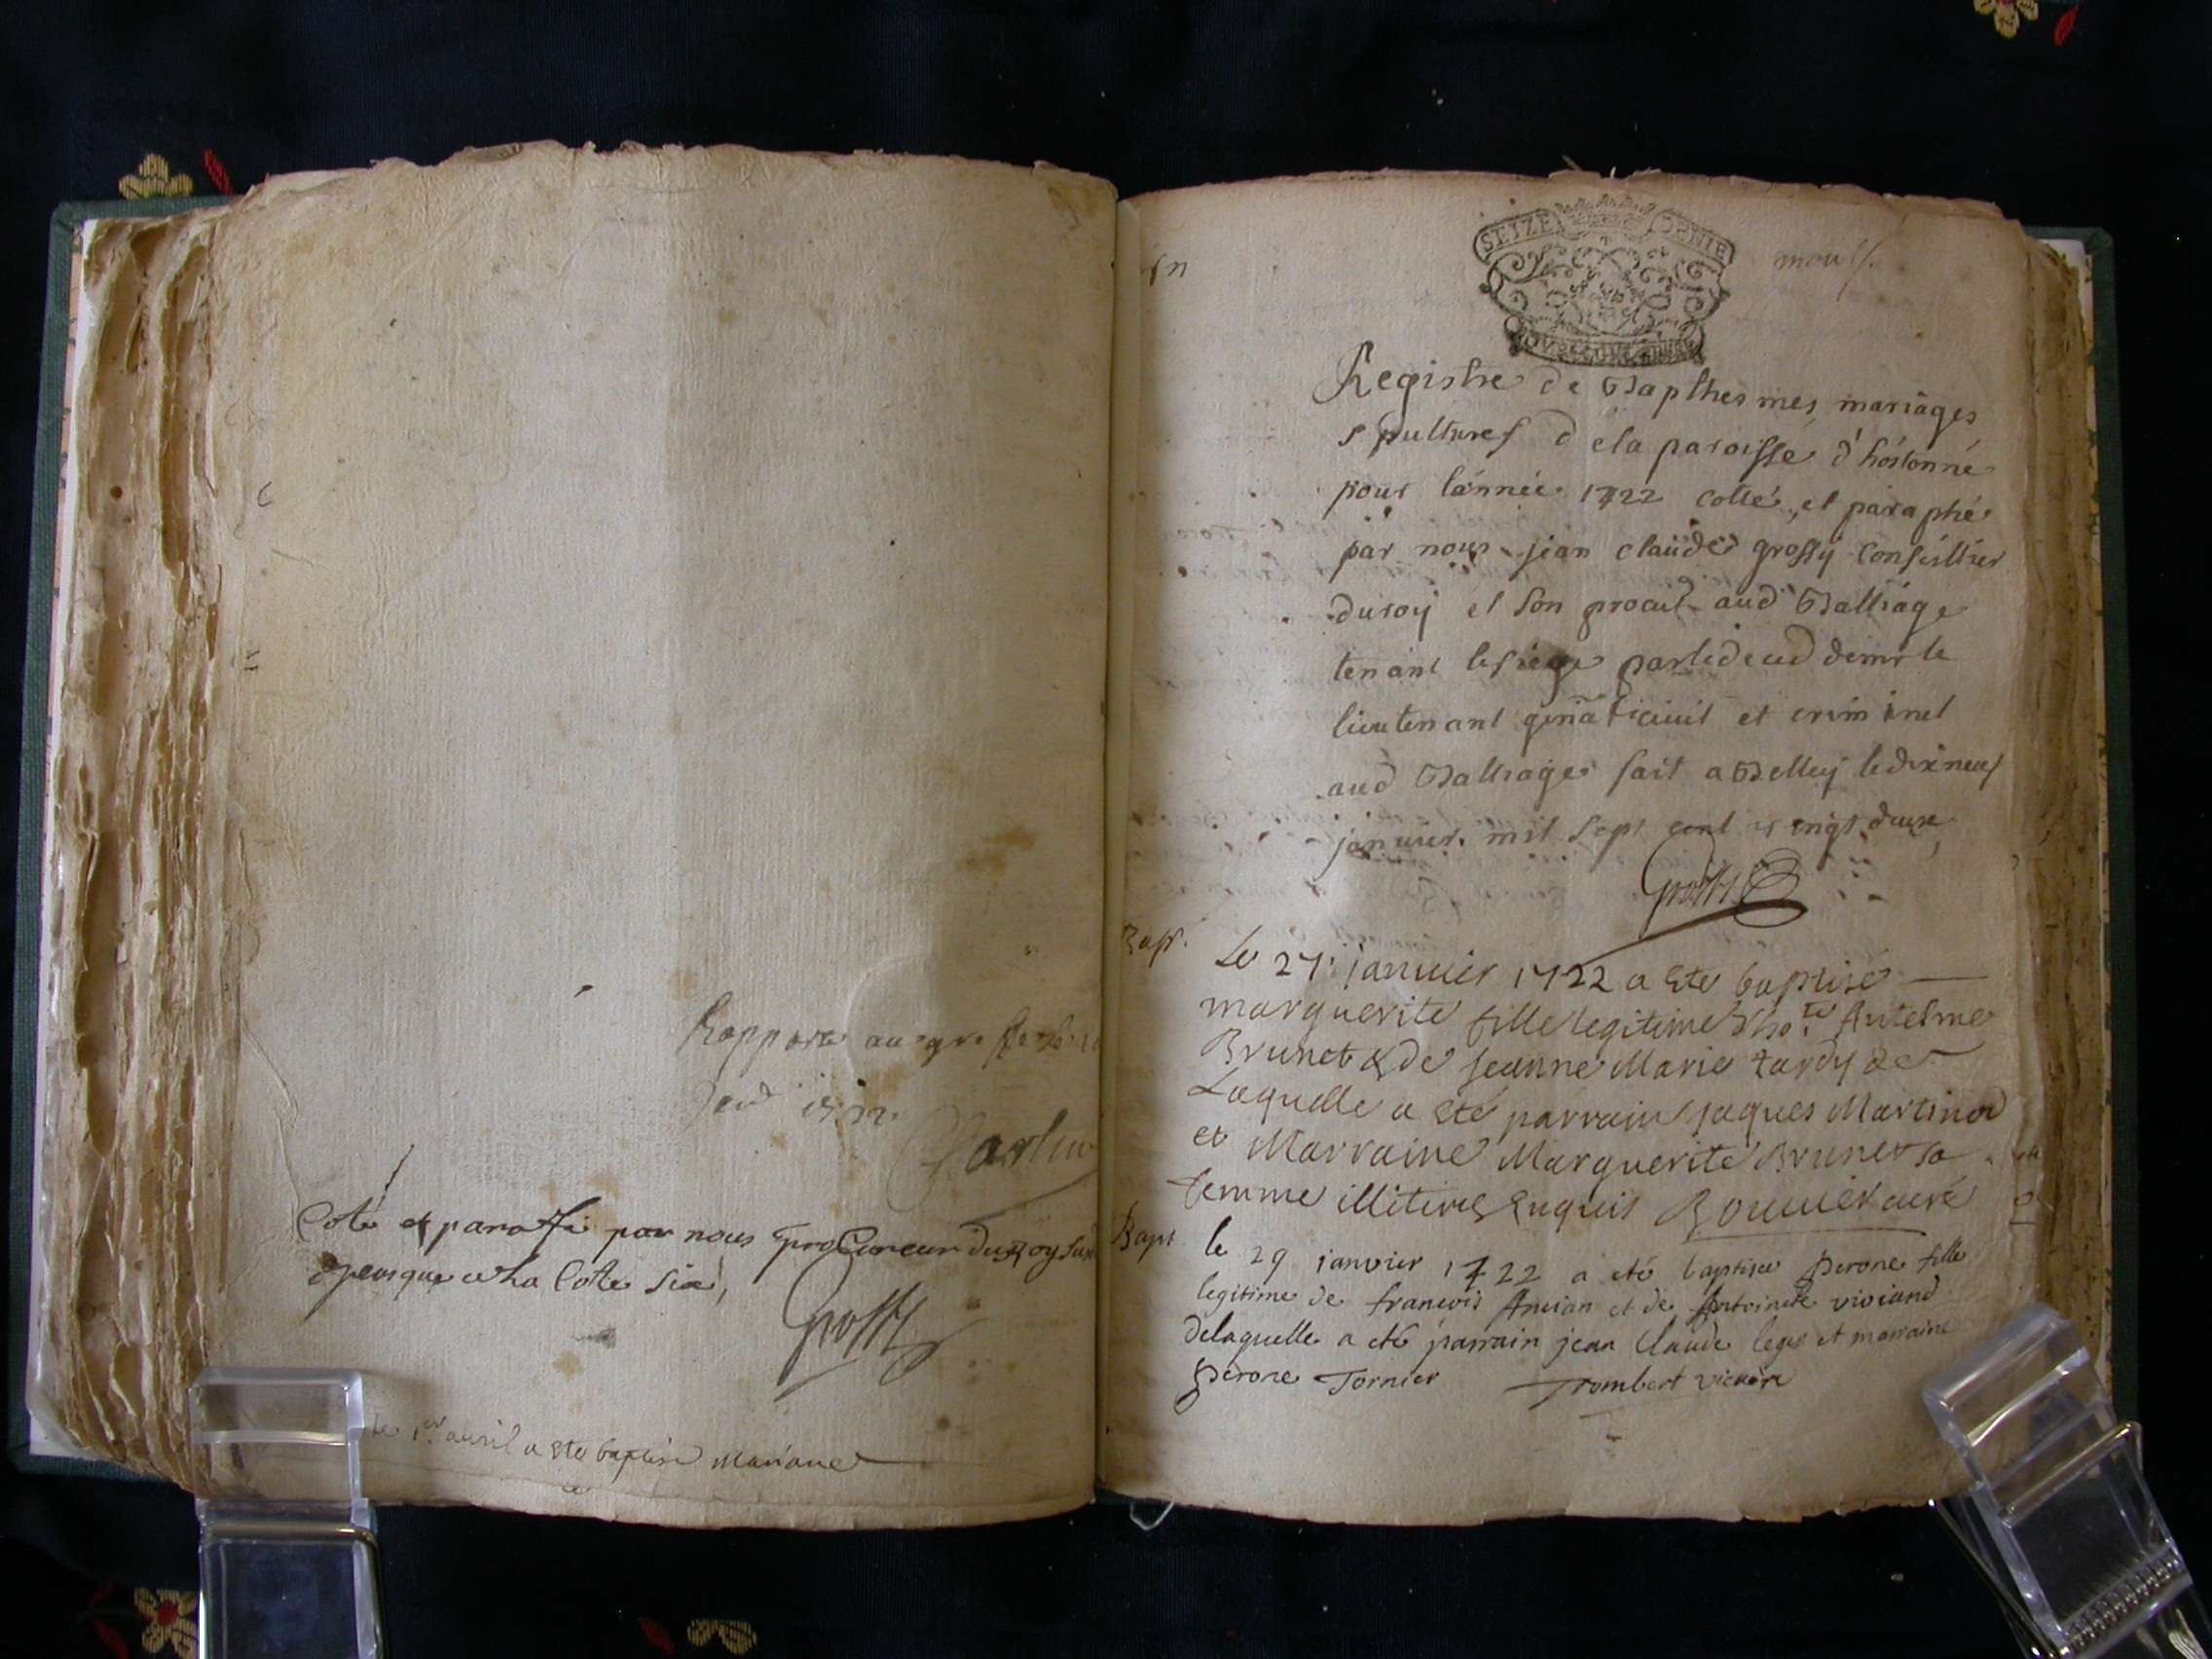 Rapporté au greffe
Cote et paraffé par nous procureur du Roy
cote six,
Grossy
le 1er auril a ete baptisé Mariane
SEIZE DENIE
Registre de Bapthesmes, mariages
spultures dela paroisse d'hostonne
pour l'année 1722 cotté, et paraphé
par nous jean claüde grossy Conseillier
duroy et son procu.r aud Balliage
tenant le siege
lieutenant gen̄al ciuil et criminel
aud Balliage fait a Belley le dix neuf
januier mil sept cent vingt deux,
Grossy
Bapt.
Le 27. januier 1722 a ete baptisé
marguerite fille legitime d'ho.te Antelme
Brunet & de Jeanne Marie tardy de
Laquelle a eté parrain jaques Martinod
et Marraine Marguerite Brunet sa
femme illitires Enquis Bouuier curé
Bapt
le 29 janvier 1722 a eté baptisee perone fille
legitime de francois Ancian et de Antoinete viviand
delaquelle a eté parrain jean Claude leger et marraine
perone Tornier Trombert vicaire